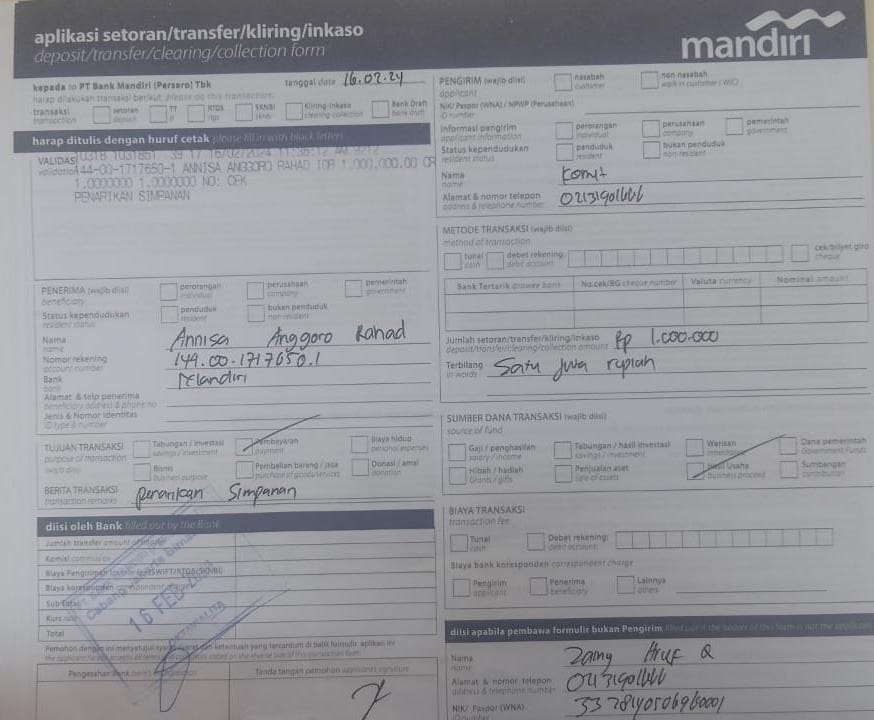 aplikasi setoran/transfer/kliring/inkaso
deposit/transfer/clearing/collection form
mandiri
kepada to PT Bank Mandiri (Persero) Tbk
tanggal date 16.02.24
harap dilakukan transaksi berikut please do this transaction:
transaksi
transaction
setoran
deposit
TT
RTGS
SKNBI
Kliring-inkaso
clearing-collection
Bank Draft
bank draft
harap ditulis dengan huruf cetak please fill in with block letters
VALIDASI
validation
16/02/2024 11:36:12 AM
144-00-1717650-1 ANNISA ANGGORO RAHAD IDR 1.000.000.00 CR
1.0000000 1.0000000 NO: CEK
PENARIKAN SIMPANAN
PENERIMA (wajib diisi)
beneficiary
perorangan
individual
perusahaan
company
pemerintah
government
Status kependudukan
resident status
penduduk
resident
bukan penduduk
non-resident
Nama
name
Annisa Anggoro Rahad
Nomor rekening
account number
144.00.1717650.1
Bank
bank
Mandiri
Alamat & telp penerima
beneficiary address & phone no
Jenis & Nomor Identitas
ID type & number
TUJUAN TRANSAKSI
purpose of transaction
(wajib diisi)
Tabungan / investasi
savings / investment
Pembayaran
payment
Biaya hidup
personal expenses
Bisnis
business purpose
Pembelian barang / jasa
purchase of goods/services
Donasi / amal
donation
BERITA TRANSAKSI
transaction remarks
penarikan Simpanan
diisi oleh Bank filled out by the Bank
Jumlah transfer amount of transfer
Komisi commission
Biaya Pengiriman
Biaya koresponden
Sub Total
Kurs rate
Total
16 FEB 2024
Pemohon dengan ini menyetujui syarat-syarat dan ketentuan yang tercantum di balik formulir aplikasi ini
Pengesahan Bank
Tanda tangan pemohon applicant's signature
PENGIRIM (wajib diisi)
applicant
nasabah
customer
non nasabah
walk in customer ( WIC)
NIK/ Paspor (WNA) / NPWP (Perusahaan)
ID number
Informasi pengirim
applicant information
perorangan
individual
perusahaan
company
pemerintah
government
Status kependudukan
resident status
penduduk
resident
bukan penduduk
non-resident
Nama
name
Alamat & nomor telepon
address & telephone number
02131901666
METODE TRANSAKSI (wajib diisi)
method of transaction
tunai
cash
debet rekening
debit account
cek/bilyet giro
cheque
Bank Tertarik drawee bank
No.cek/BG cheque number
Valuta currency
Nominal amount
Jumlah setoran/transfer/kliring/inkaso
deposit/transfer/clearing/collection amount
Rp 1.000.000
Terbilang
in words
Satu juta rupiah
SUMBER DANA TRANSAKSI (wajib diisi)
source of fund
Gaji / penghasilan
salary / income
Tabungan / hasil investasi
savings / investment
Warisan
inheritance
Dana pemerintah
Government Funds
Hibah / hadiah
Grants / gifts
Penjualan aset
sale of assets
Hasil Usaha
business proceed
Sumbangan
contribution
BIAYA TRANSAKSI
transaction fee
Tunai
cash
Debet rekening:
debit account:
Biaya bank koresponden correspondent charge
Pengirim
applicant
Penerima
beneficiary
Lainnya
others
diisi apabila pembawa formulir bukan Pengirim filled out if the bearer of this form is not the applicant
Nama
name
Alamat & nomor telepon
address & telephone number
02131901666
NIK/ Paspor (WNA)
ID number